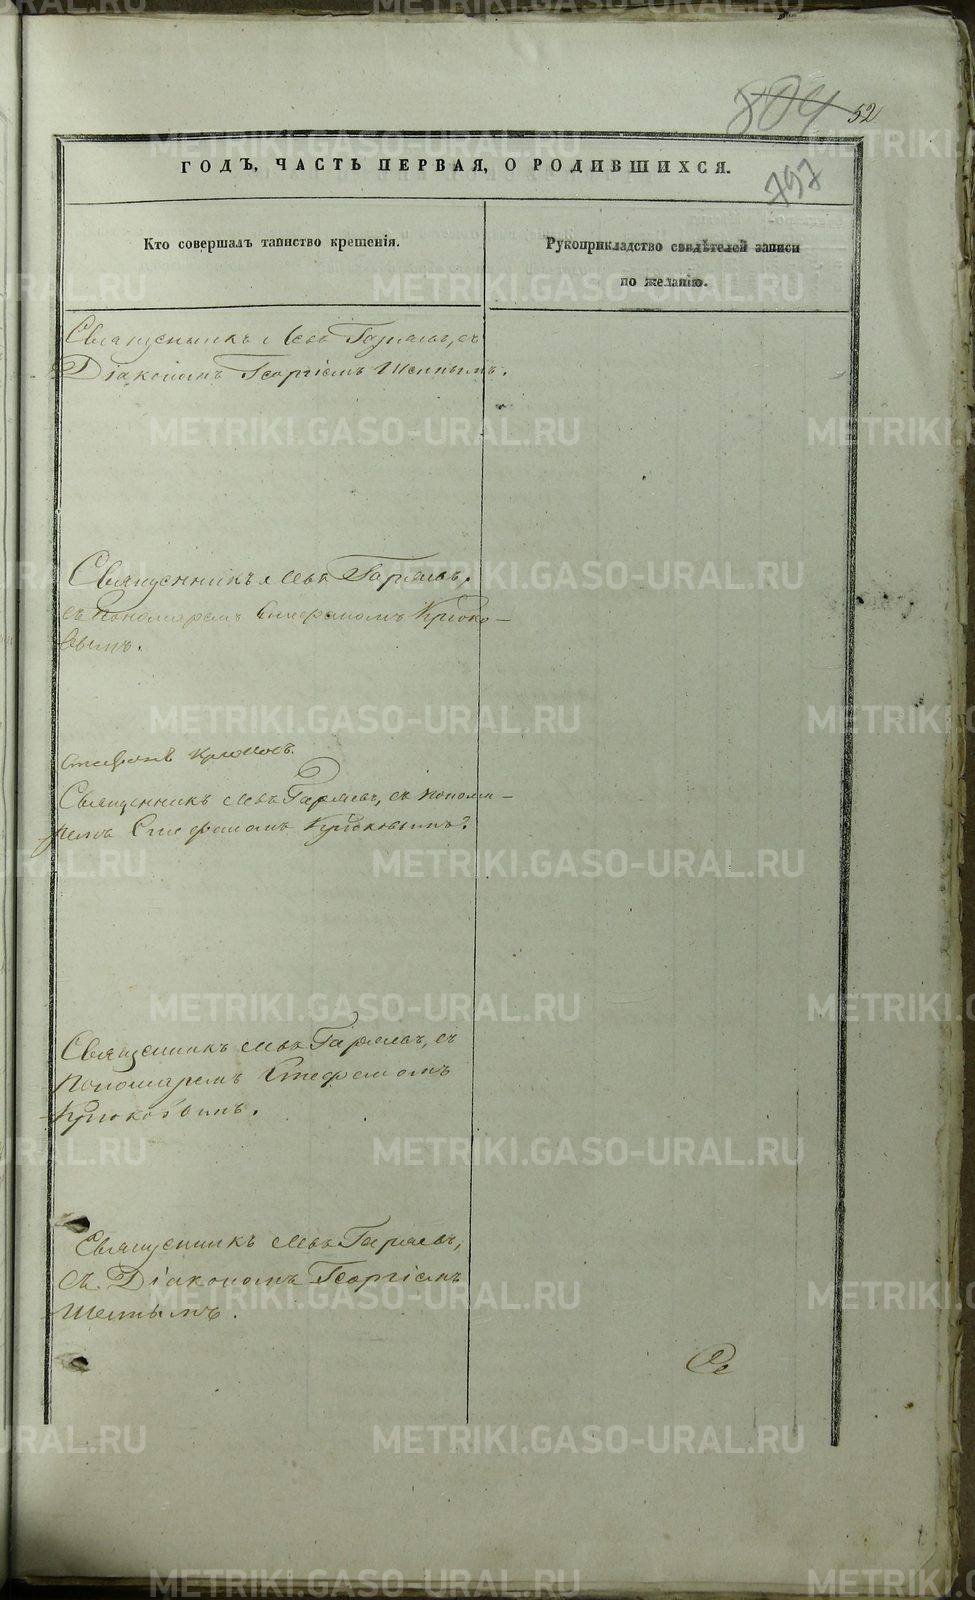 804 52
797
ГОДЪ, ЧАСТЬ ПЕРВАЯ, О РОДИВШИХСЯ.
Кто совершалъ таинство крещенія.
Рукоприкладство свидѣтелей записи
по желанію.
Священникъ Левъ Гаряевъ, съ
Діакономъ Георгіемъ
Священникъ Левъ Гаряевъ,
съ пономаремъ Стефаномъ Крюко-
вымъ.
Стефанъ Крюковъ.
Священникъ Левъ Гаряевъ, съ понома-
ремъ Стефаномъ Крюковымъ.
Священникъ Левъ Гаряевъ, съ
Пономаремъ Стефаномъ
Крюковымъ.
Священникъ Левъ Гаряевъ,
съ Діакономъ Георгіемъ
METRIKI.GASO-URAL.RU